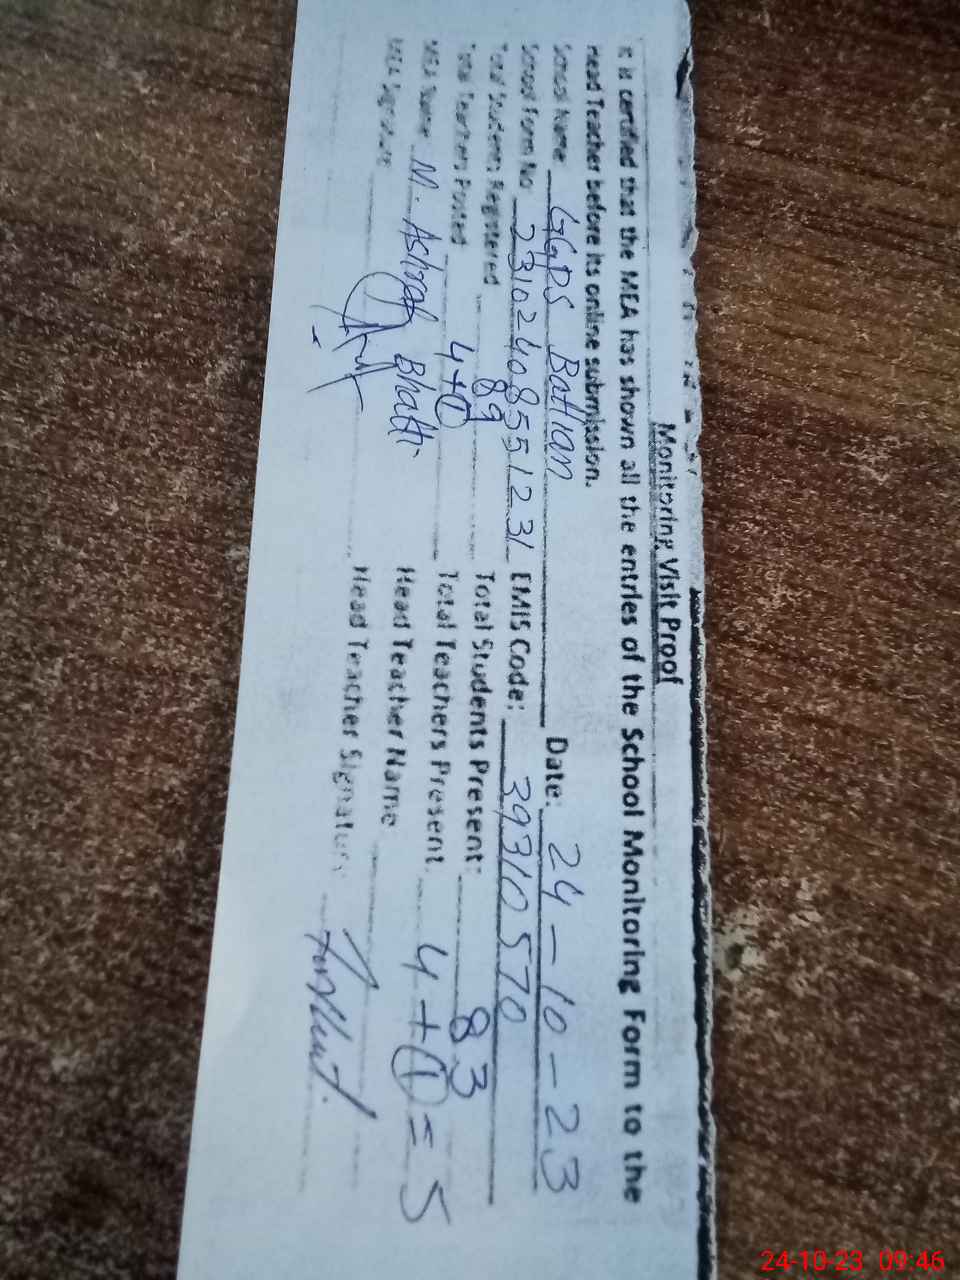 Monitoring Visit Proof
It is certified that the MEA has shown all the entries of the School Monitoring Form to the
Head Teacher before its online submission.
School Name GGPS Battian Date: 24-10-23
School Form No 23102408551231 EMIS Code: 39310570
Total Students Registered 89 Total Students Present: 83
Total Teachers Posted 4+1 Total Teachers Present 4+1=5
MEA Name M. Ashraf Bhatti Head Teacher Name
MEA Signature Head Teacher Signature
24-10-23 09:46